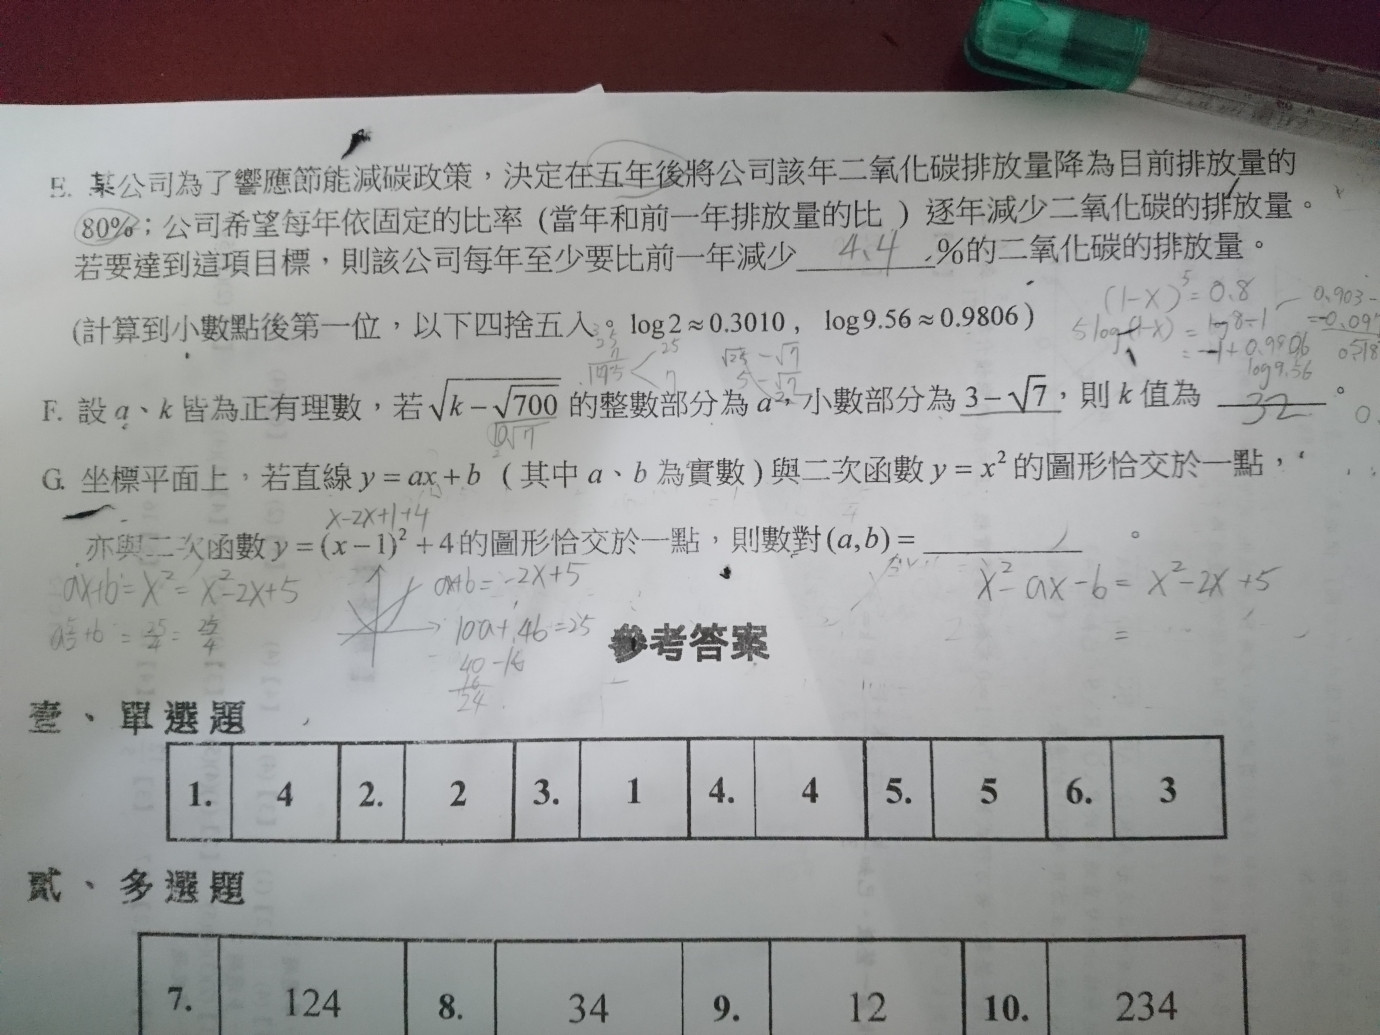 E. 某公司為了響應節能減碳政策，決定在五年後將公司該年二氧化碳排放量降為目前排放量的
80%；公司希望每年依固定的比率 (當年和前一年排放量的比 ) 逐年減少二氧化碳的排放量。
若要達到這項目標，則該公司每年至少要比前一年減少 4.4 %的二氧化碳的排放量。
(1-x)^5 = 0.8
(計算到小數點後第一位，以下四捨五入。log2≈0.3010， log9.56≈0.9806)
5log(1-x) = log8-1
= -1+0.9806
log9.56
F. 設 a、k 皆為正有理數，若 √(k-√700) 的整數部分為 a，小數部分為 3-√7，則 k 值為 32 。
10√7
G. 坐標平面上，若直線 y=ax+b (其中 a、b 為實數)與二次函數 y=x² 的圖形恰交於一點，
x-2x+1+4
亦與二次函數 y=(x-1)²+4的圖形恰交於一點，則數對(a,b)= 。
ax+b=x²=x²-2x+5
ax+b=-2x+5
x²-ax-b=x²-2x+5
10a+4b=25
40-16
16
24
參考答案
壹、單選題
1. 4 2. 2 3. 1 4. 4 5. 5 6. 3
貳、多選題
7. 124 8. 34 9. 12 10. 234